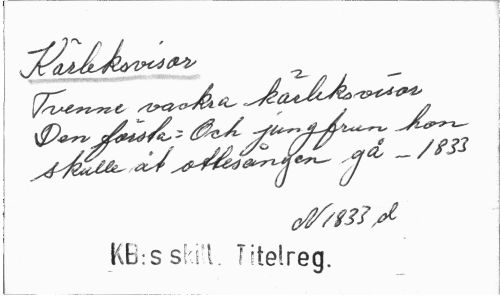 Kärleksvisor
Tvenne vackra kärleksvisor
Den första = Och jungfrun hon
skulle åt ottesången gå – 1833
N 1833 d
KB:s skill. Titelreg.